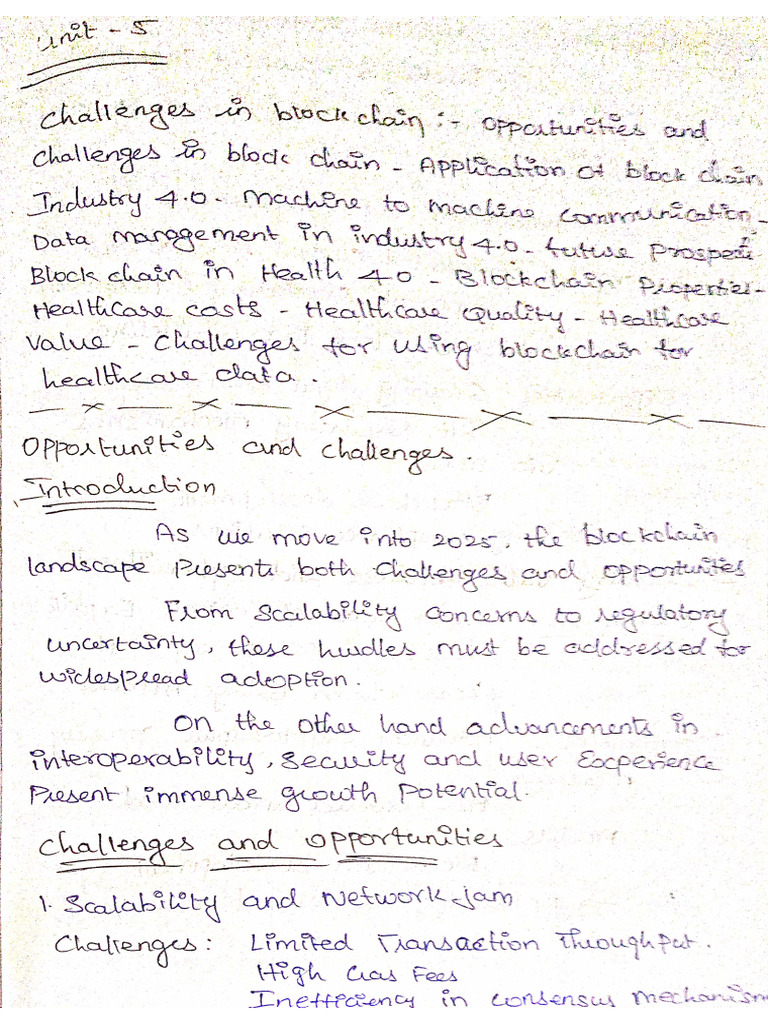 Unit - 5
Challenges in blockchain :- Opportunities and
Challenges in block chain - Application of block chain
Industry 4.0 - Machine to Machine Communication -
Data management in industry 4.0 - future prospects
Block chain in Health 4.0 - Blockchain Properties -
Healthcare costs - Healthcare Quality - Healthcare
value - challenges for using blockchain for
healthcare data.
Opportunities and challenges.
Introduction
As we move into 2025, the blockchain
landscape Presents both challenges and opportunities
From Scalability concerns to regulatory
uncertainty, these hurdles must be addressed for
widespread adoption.
On the other hand advancements in
interoperability, security and user Experience
Present immense growth Potential.
Challenges and opportunities
1. Scalability and Network Jam
Challenges: Limited Transaction Throughput.
High Gas Fees
Inefficiency in consensus mechanism